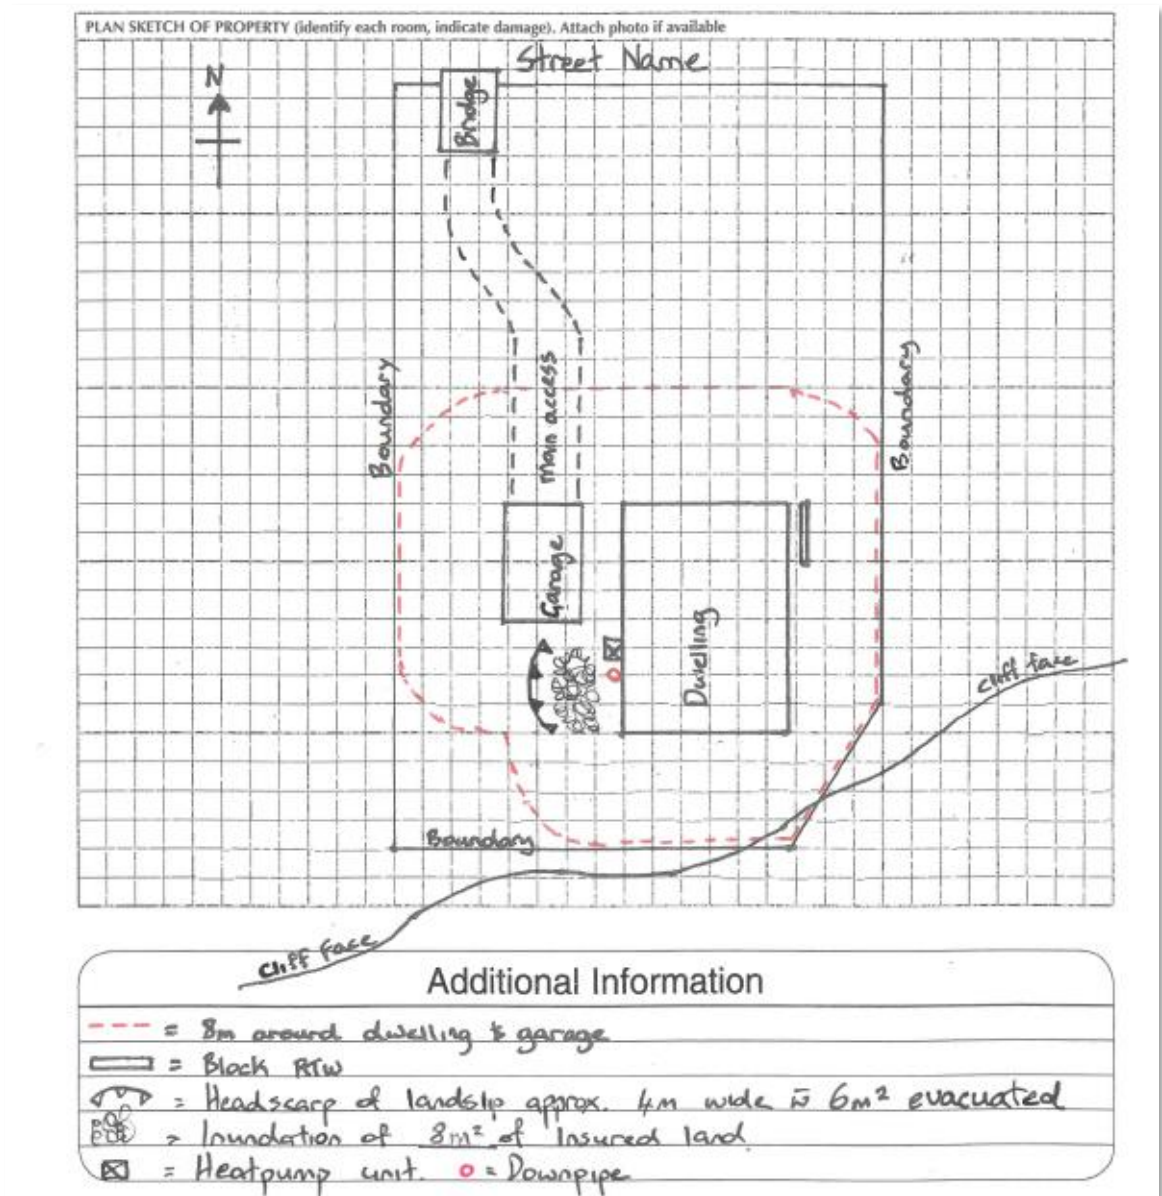 PLAN SKETCH OF PROPERTY (identify each room, indicate damage). Attach photo if available
Street Name
N
Bridge
Boundary
Main access
Boundary
Garage
Dwelling
Cliff face
Boundary
Cliff face
Additional Information
= 8m around dwelling & garage
= Block RTW
= Headscarp of landslip approx. 4m wide w̄ 6m² evacuated
= Inundation of 8m² of Insured land
= Heatpump unit. = Downpipe